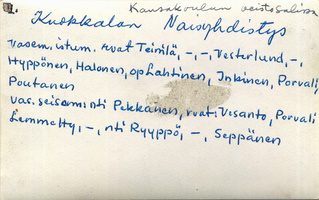 Kansakoulun veistosalissa
Kuokkalan Naisyhdistys
Vasem. istum. rvat Teinilä, -, -, Vesterlund, -,
Hyppönen, Halonen, op Lahtinen, Inkinen, Porvali,
Poutanen
vas. seisom. nti Pekkanen, rvat. Vesanto, Porvali
Lemmetty, -, nti Ryyppö, -, Seppänen